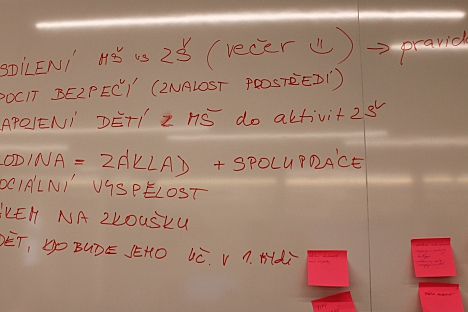 SDÍLENÍ MŠ vs ZŠ (večer ☺) → pravid
POCIT BEZPEČÍ (ZNALOST PROSTŘEDÍ)
APOJENÍ DĚTÍ Z MŠ do aktivit ZŠ
ODINA = ZÁKLAD + SPOLUPRÁCE
OCIÁLNÍ VYSPĚLOST
ÁKEM NA ZKOUŠKU
DĚT, KDO BUDE JEHO UČ. V 1. třídě